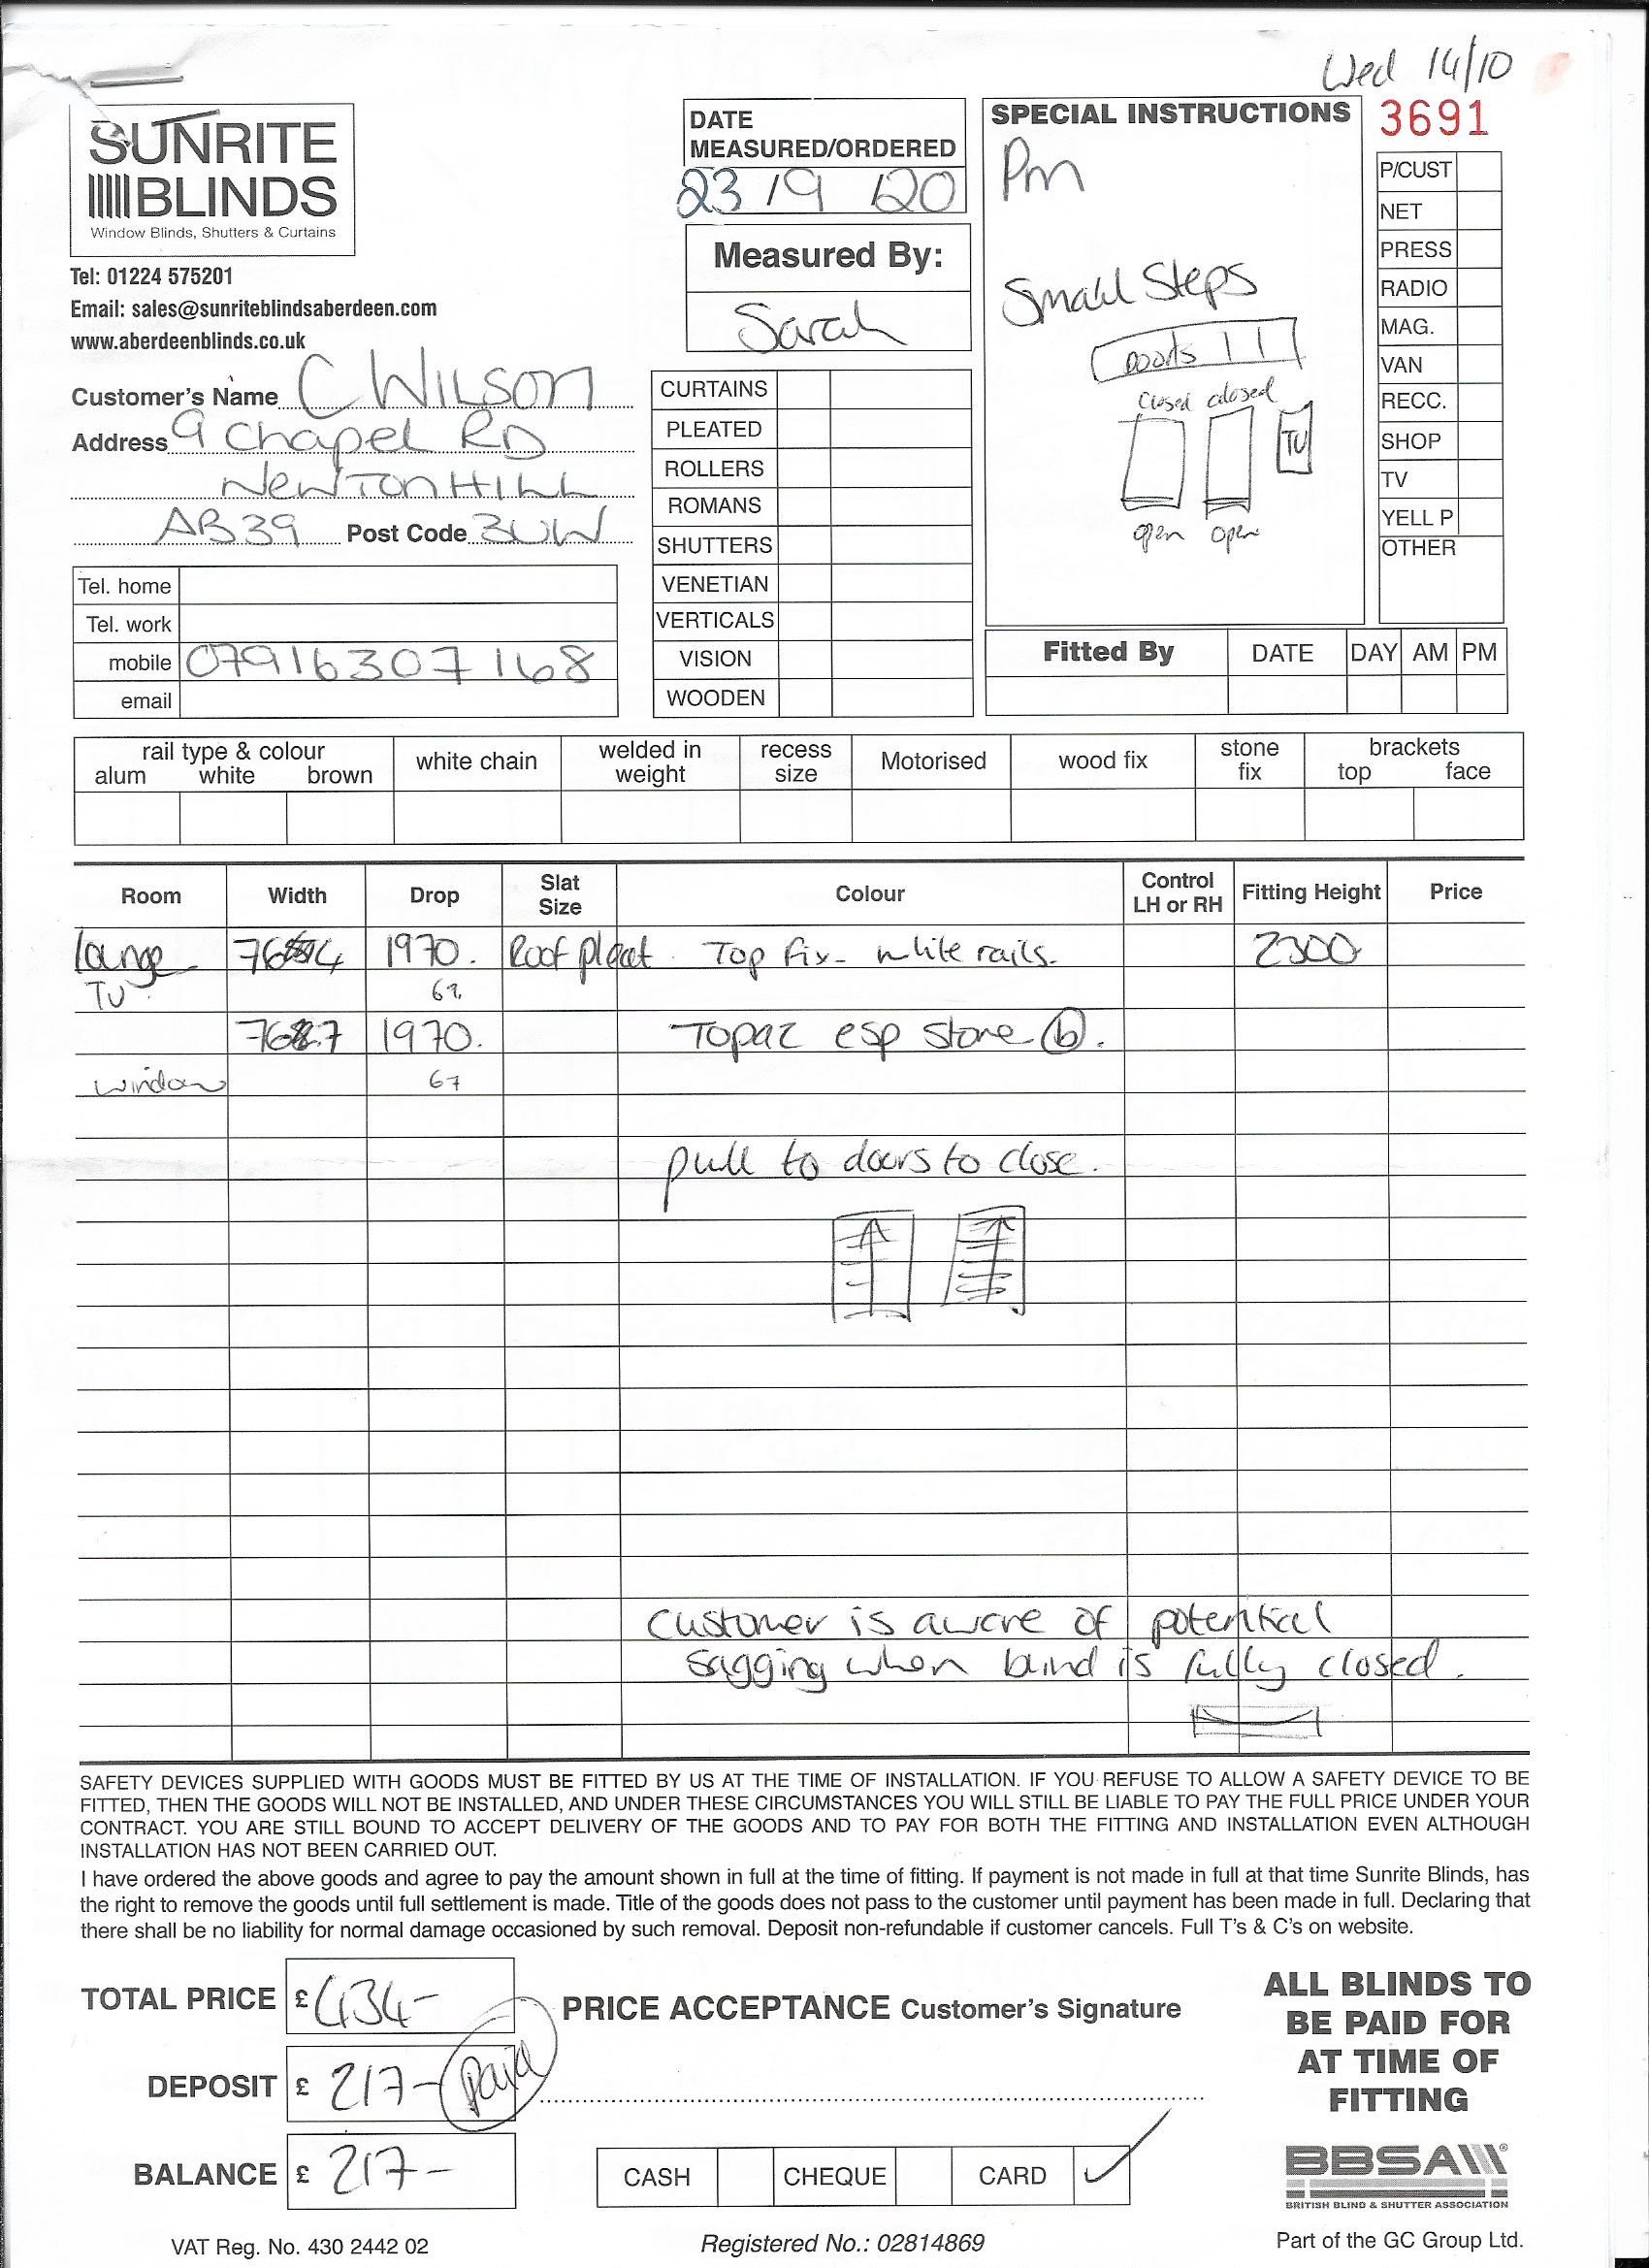 Wed 14/10
SUNRITE
BLINDS
Window Blinds, Shutters & Curtains
Tel: 01224 575201
Email: sales@sunriteblindsaberdeen.com
www.aberdeenblinds.co.uk
Customer's Name C WILSON
Address 9 Chapel RD
NEWTONHILL
AB39 Post Code 3UW
Tel. home
Tel. work
mobile 07916307168
email
DATE
MEASURED/ORDERED
23/9/20
Measured By:
Sarah
CURTAINS
PLEATED
ROLLERS
ROMANS
SHUTTERS
VENETIAN
VERTICALS
VISION
WOODEN
SPECIAL INSTRUCTIONS
Pm
Small Steps
doors
closed closed
TV
open open
3691
P/CUST
NET
PRESS
RADIO
MAG.
VAN
RECC.
SHOP
TV
YELL P
OTHER
Fitted By DATE DAY AM PM
rail type & colour
alum white brown
white chain
welded in weight
recess size
Motorised
wood fix
stone fix
brackets
top face
Room Width Drop Slat Size Colour Control LH or RH Fitting Height Price
lounge 1970. Roof pleat Top fix - white rails. 2300
TV
1970. Topaz esp stone (b).
window 67
pull to doors to close.
Customer is aware of potential
sagging when blind is fully closed.
SAFETY DEVICES SUPPLIED WITH GOODS MUST BE FITTED BY US AT THE TIME OF INSTALLATION. IF YOU REFUSE TO ALLOW A SAFETY DEVICE TO BE
FITTED, THEN THE GOODS WILL NOT BE INSTALLED, AND UNDER THESE CIRCUMSTANCES YOU WILL STILL BE LIABLE TO PAY THE FULL PRICE UNDER YOUR
CONTRACT. YOU ARE STILL BOUND TO ACCEPT DELIVERY OF THE GOODS AND TO PAY FOR BOTH THE FITTING AND INSTALLATION EVEN ALTHOUGH
INSTALLATION HAS NOT BEEN CARRIED OUT.
I have ordered the above goods and agree to pay the amount shown in full at the time of fitting. If payment is not made in full at that time Sunrite Blinds, has
the right to remove the goods until full settlement is made. Title of the goods does not pass to the customer until payment has been made in full. Declaring that
there shall be no liability for normal damage occasioned by such removal. Deposit non-refundable if customer cancels. Full T's & C's on website.
TOTAL PRICE £434-
DEPOSIT £ 217- paid
BALANCE £ 217-
PRICE ACCEPTANCE Customer's Signature
CASH CHEQUE CARD ✓
ALL BLINDS TO
BE PAID FOR
AT TIME OF
FITTING
BBSA
BRITISH BLIND & SHUTTER ASSOCIATION
VAT Reg. No. 430 2442 02
Registered No.: 02814869
Part of the GC Group Ltd.